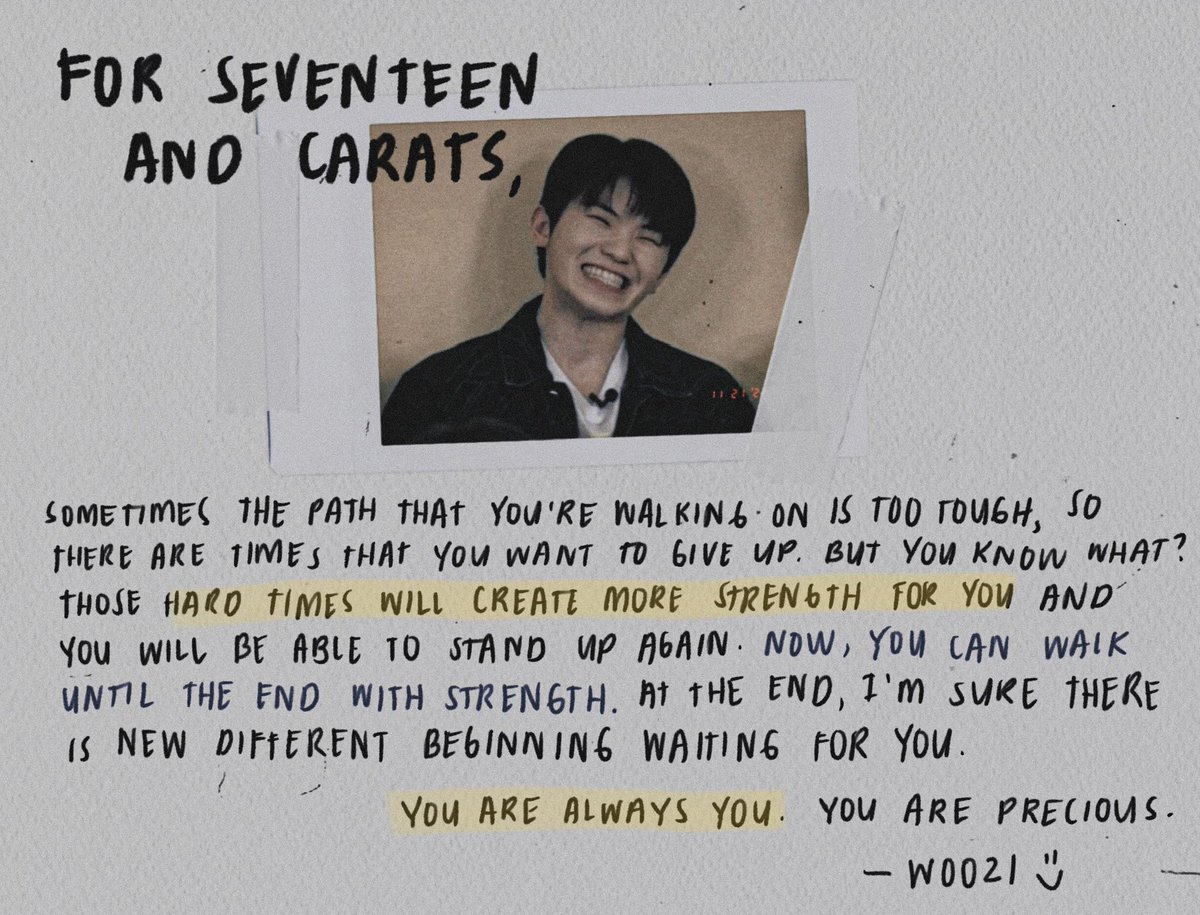 FOR SEVENTEEN
AND CARATS,
11 21 2
SOMETIMES THE PATH THAT YOU'RE WALKING ON IS TOO TOUGH, SO
THERE ARE TIMES THAT YOU WANT TO GIVE UP. BUT YOU KNOW WHAT?
THOSE HARD TIMES WILL CREATE MORE STRENGTH FOR YOU AND
YOU WILL BE ABLE TO STAND UP AGAIN. NOW, YOU CAN WALK
UNTIL THE END WITH STRENGTH. AT THE END, I'M SURE THERE
IS NEW DIFFERENT BEGINNING WAITING FOR YOU.
YOU ARE ALWAYS YOU. YOU ARE PRECIOUS.
— WOOZI